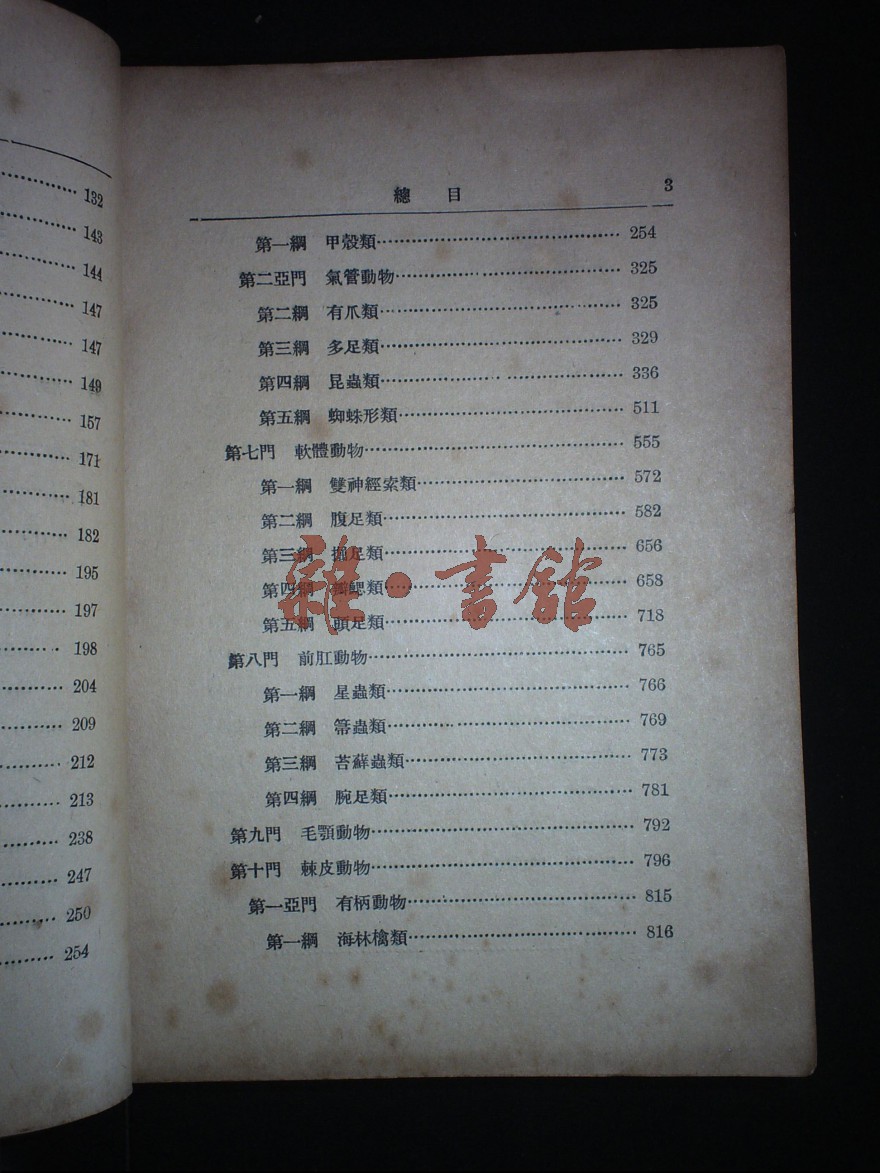 132
143
144
147
147
149
157
171
181
182
195
197
198
204
209
212
213
238
247
250
254
總 目 3
第一綱 甲殼類 254
第二亞門 氣管動物 325
第二綱 有爪類 325
第三綱 多足類 329
第四綱 昆蟲類 336
第五綱 蜘蛛形類 511
第七門 軟體動物 555
第一綱 雙神經索類 572
第二綱 腹足類 582
第三綱 掘足類 656
第四綱 瓣鰓類 658
第五綱 頭足類 718
雜·書館
第八門 前肛動物 765
第一綱 星蟲類 766
第二綱 箒蟲類 769
第三綱 苔蘚蟲類 773
第四綱 腕足類 781
第九門 毛顎動物 792
第十門 棘皮動物 796
第一亞門 有柄動物 815
第一綱 海林檎類 816